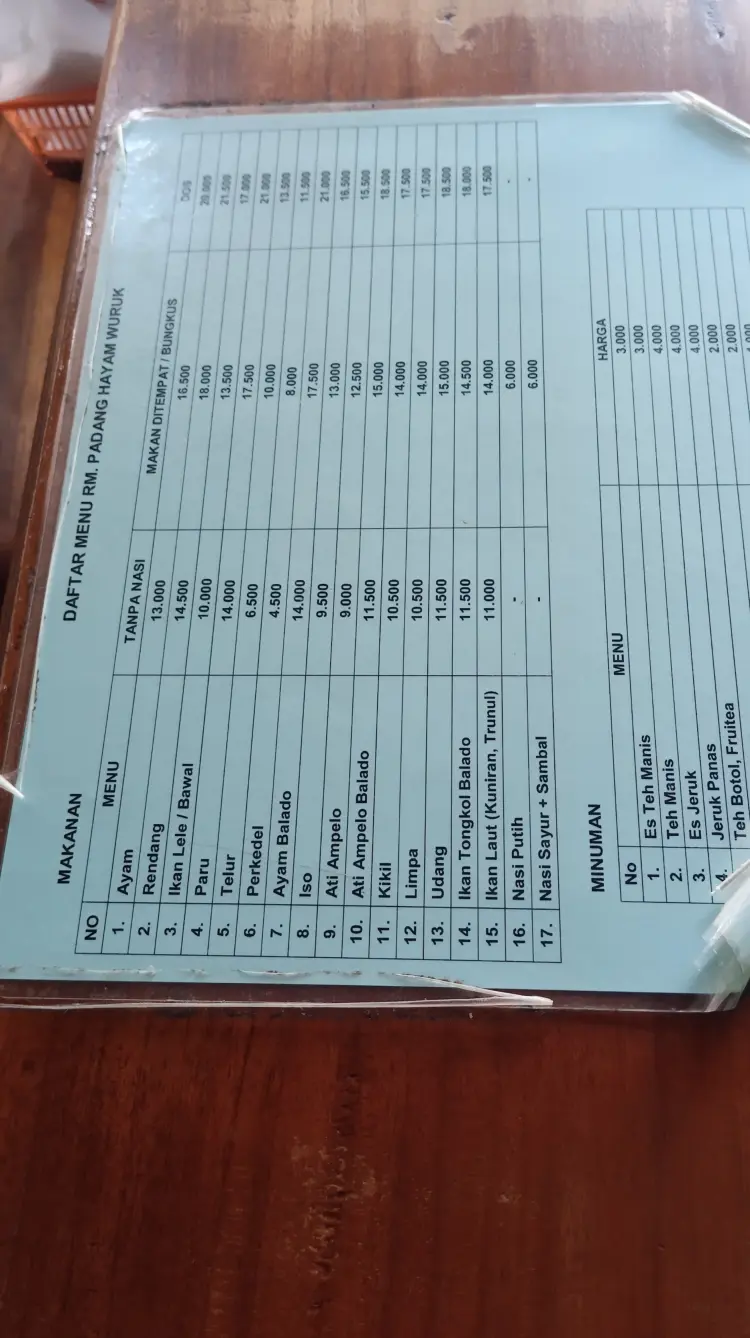 DAFTAR MENU RM. PADANG HAYAM WURUK
MAKANAN
NO MENU TANPA NASI MAKAN DITEMPAT / BUNGKUS DOS
1. Ayam 13.000 16.500 20.000
2. Rendang 14.500 18.000 21.500
3. Ikan Lele / Bawal 10.000 13.500 17.000
4. Paru 14.000 17.500 21.000
5. Telur 6.500 10.000 13.500
6. Perkedel 4.500 8.000 11.500
7. Ayam Balado 14.000 17.500 21.000
8. Iso 9.500 13.000 16.500
9. Ati Ampelo 9.000 12.500 15.500
10. Ati Ampelo Balado 11.500 15.000 18.500
11. Kikil 10.500 14.000 17.500
12. Limpa 10.500 14.000 17.500
13. Udang 11.500 15.000 18.500
14. Ikan Tongkol Balado 11.500 14.500 18.000
15. Ikan Laut (Kuniran, Trunul) 11.000 14.000 17.500
16. Nasi Putih - 6.000 -
17. Nasi Sayur + Sambal - 6.000 -
MINUMAN
No MENU HARGA
1. Es Teh Manis 3.000
2. Teh Manis 3.000
3. Es Jeruk 4.000
4. Jeruk Panas 4.000
Teh Botol, Fruitea 4.000
2.000
2.000